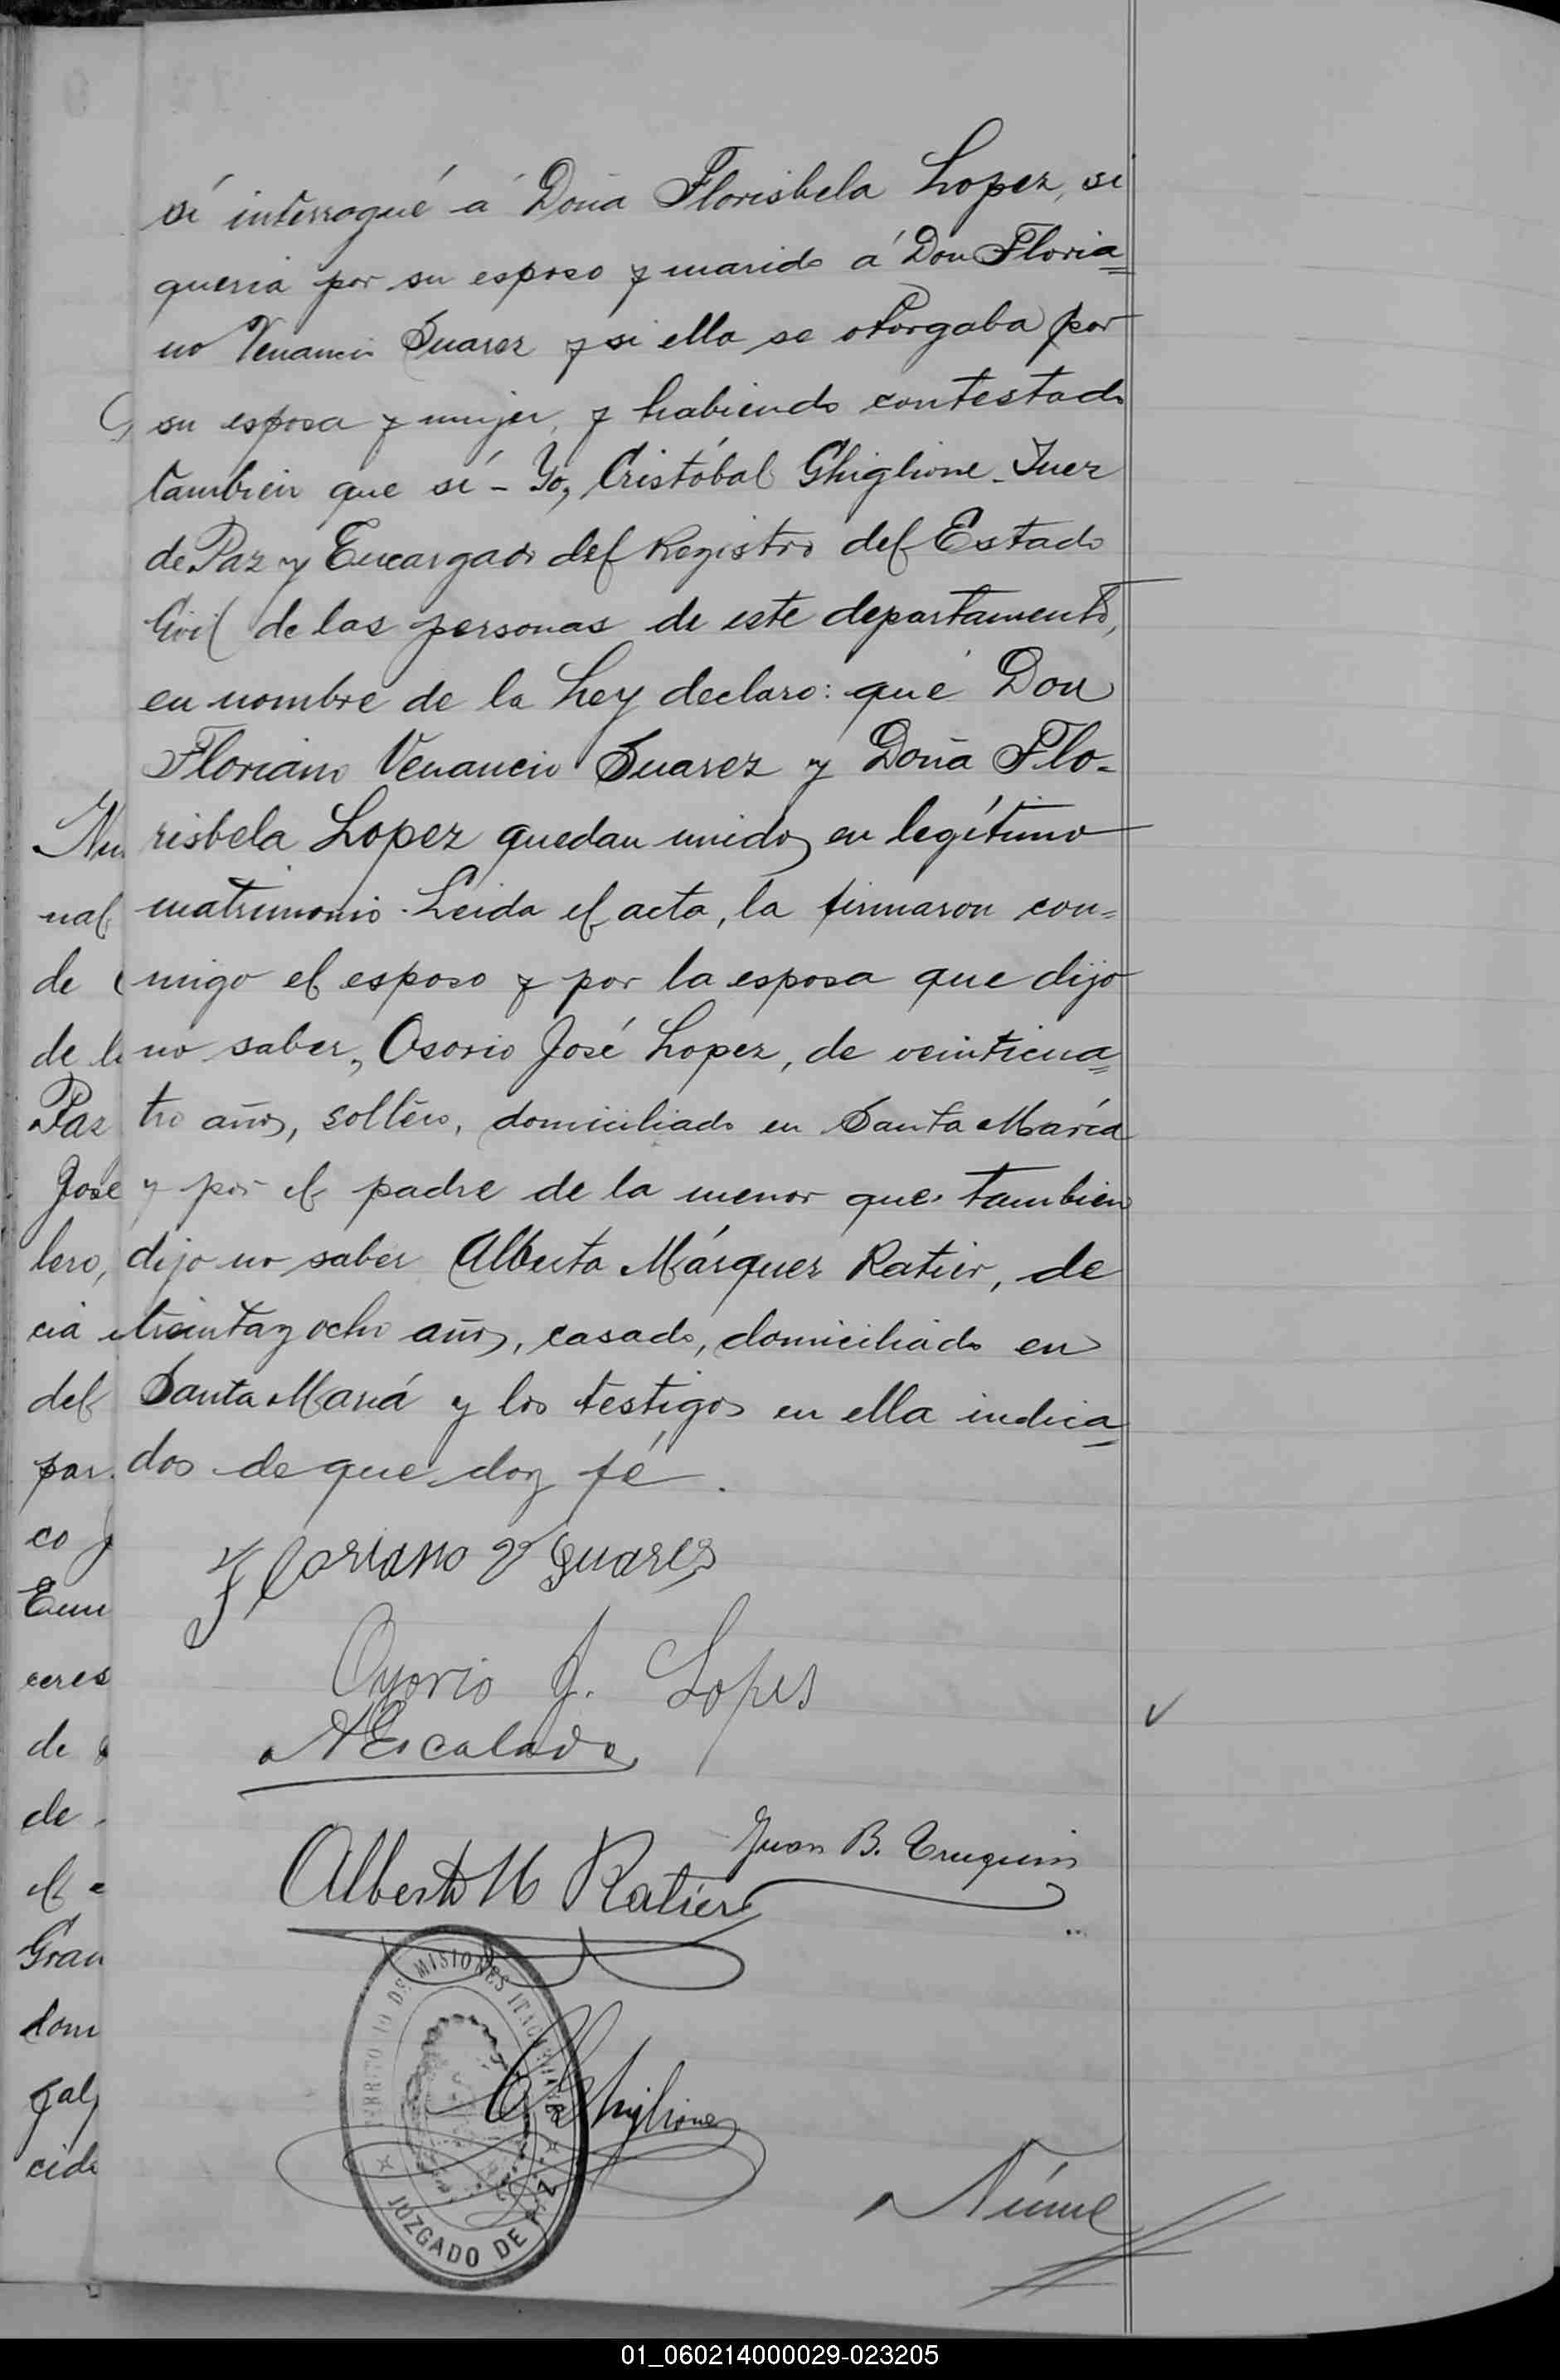 sí interrogué á Doña Florisbela Lopez, si
queria por su esposo y marido á Don Floria=
no Venancio Suarez y si ella se otorgaba por
su esposa y mujer, y habiendo contestado
tambien que sí - Yo, Cristóbal Ghiglione - Juez
de Paz y Encargado del Registro del Estado
Civil de las personas de este departamento,
en nombre de la Ley declaro: que Don
Floriano Venancio Suarez y Doña Flo-
risbela Lopez quedan unidos en legítimo
matrimonio. Leida el acta, la firmaron con=
migo el esposo y por la esposa que dijo
no saber, Osorio José Lopez, de veinticua=
tro años, soltero, domiciliado en Santa María
y por el padre de la menor que tambien
dijo no saber Alberto Márquez Ratier, de
treinta y ocho años, casado, domiciliado en
Santa María y los testigos en ella indica=
dos de que doy fé.
Floriano V Suares
Osorio J. Lopes
A Escalada
Juan B.
Alberto M Ratier
TERRITORIO DE MISIONES
C Ghiglione
JUZGADO DE PAZ
Núme
Nu
nal
de
de l
Paz
José
lero,
cia
del
par
co
Eum
ceres
de
de
el
Gran
dom
gal
cid
01_060214000029-023205